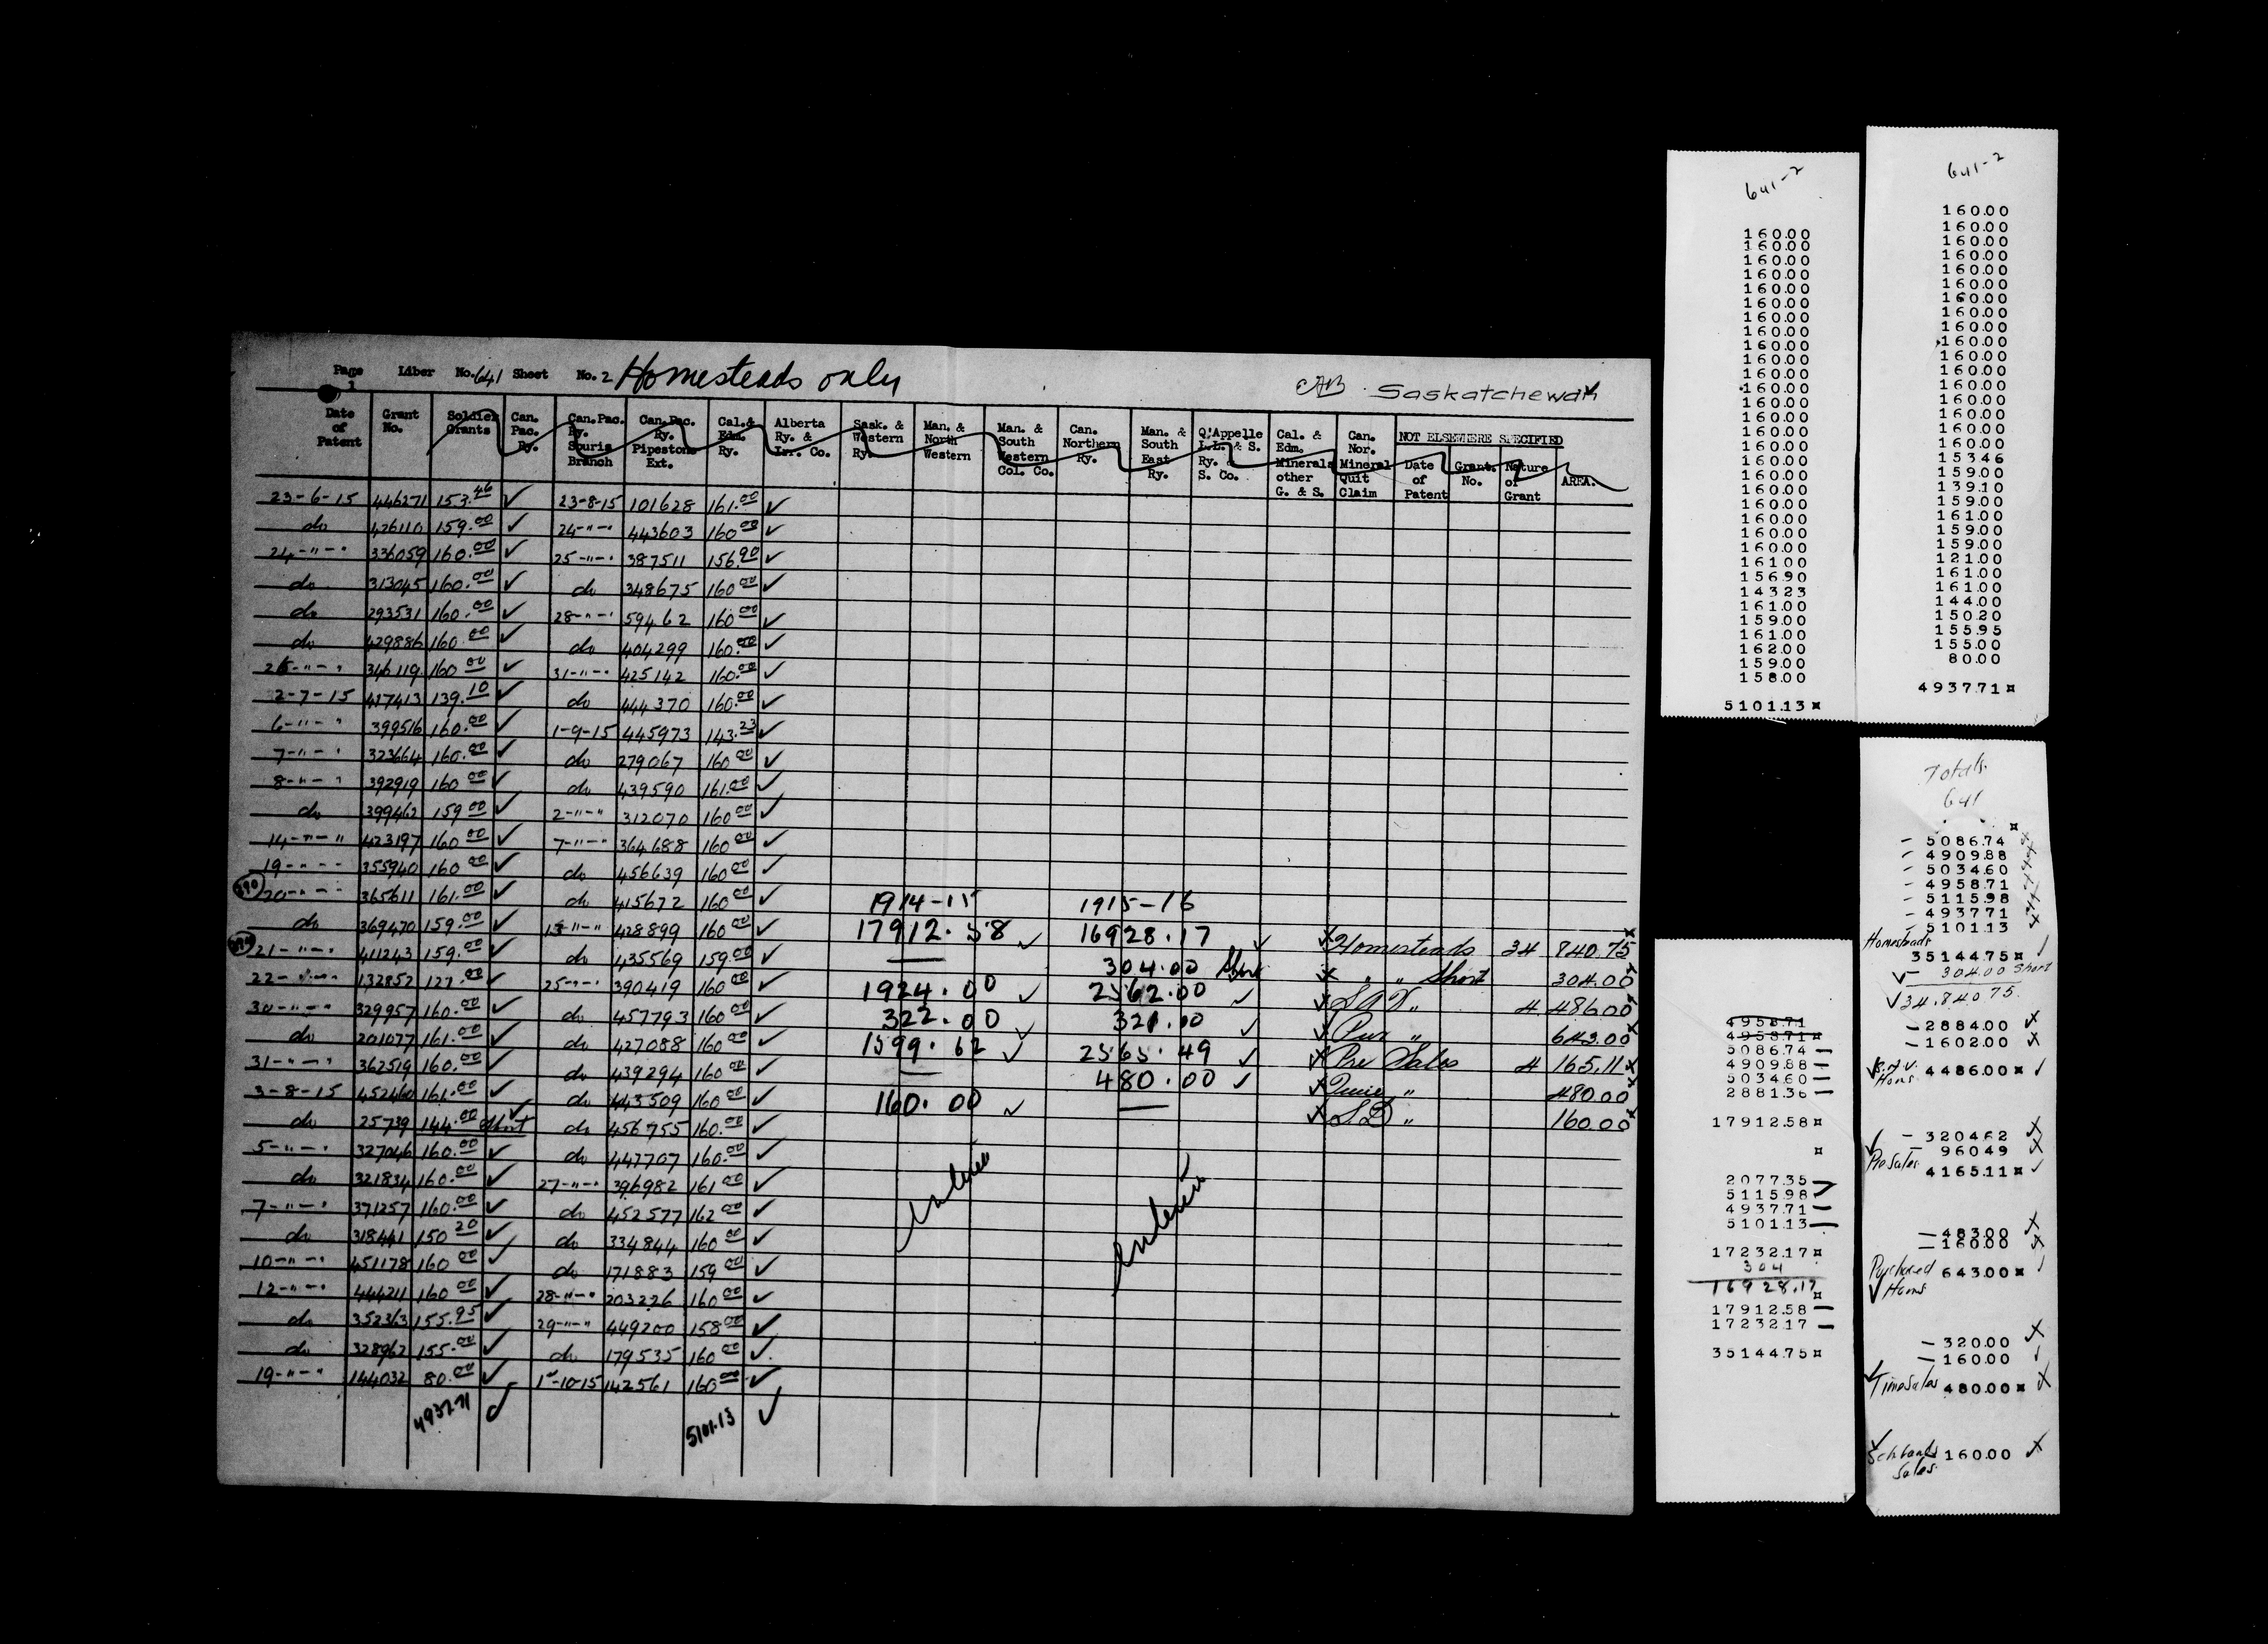 Page 1 Liber No. 641 Sheet No. 2 Homesteads only
CAB Saskatchewan
Date of Patent | Grant No. | Soldier Grants | Can. Pac. Ry. | Can.Pac. Ry. Souris Branch | Can.Pac. Ry. Pipestone Ext. | Cal.& Edm. Ry. | Alberta Ry. & Irr. Co. | Sask. & Western Ry. | Man. & North Western | Man. & South Western Col. Co. | Can. Northern Ry. | Man. & South East Ry. | Q'Appelle L.L. & S. Ry. S. Co. | Cal. & Edm. Minerals other G. & S. | Can. Nor. Mineral Quit Claim | NOT ELSEWHERE SPECIFIED Date of Patent | Grant. No. | Nature of Grant | AREA.
23-6-15 446271 153.46 ✓ 23-8-15 101628 161.00 ✓
do 426110 159.00 ✓ 24-"-" 443603 160.00 ✓
24-"-" 336059 160.00 ✓ 25-"-" 387511 156.90 ✓
do 313045 160.00 ✓ do 348675 160.00 ✓
do 293531 160.00 ✓ 28-"-" 59462 160.00 ✓
do 429886 160.00 ✓ do 404299 160.00 ✓
346119 160.00 ✓ 31-"-" 425142 160.00 ✓
2-7-15 417413 139.10 ✓ do 444370 160.00 ✓
6-"-" 399516 160.00 ✓ 1-9-15 445973 143.23 ✓
7-"-" 323664 160.00 ✓ do 279067 160.00 ✓
8-"-" 392919 160.00 ✓ do 439590 161.00 ✓
do 399462 159.00 ✓ 2-"-" 312070 160.00 ✓
14-"-" 423197 160.00 ✓ 7-"-" 364688 160.00 ✓
19-"-" 355940 160.00 ✓ do 456639 160.00 ✓
20-"-" 365611 161.00 ✓ do 415672 160.00 ✓ 1914-15 1915-16
do 369470 159.00 ✓ 13-"-" 428899 160.00 ✓ 17912.58 ✓ 16928.17 ✓ Homesteads 34 840.75
21-"-" 411243 159.00 ✓ do 435569 159.00 ✓ — 304.00 Short " " Short 304.00
22-"-" 132852 121.00 ✓ 25-"-" 390419 160.00 ✓ 1924.00 ✓ 2562.00 ✓ S A V " 4 486.00
30-"-" 329957 160.00 ✓ do 457793 160.00 ✓ 322.00 ✓ 321.00 ✓ Pur " 643.00
do 201077 161.00 ✓ do 427088 160.00 ✓ 1599.62 ✓ 2565.49 ✓ Pre Sales 4 165.11
31-"-" 362519 160.00 ✓ do 439294 160.00 ✓ — 480.00 ✓ " 480.00
3-8-15 452460 161.00 ✓ do 443509 160.00 ✓ 160.00 ✓ — S.L " 160.00
do 25739 144.00 Short ✓ do 456755 160.00 ✓
5-"-" 327046 160.00 ✓ do 447707 160.00 ✓
do 321834 160.00 ✓ 27-"-" 396982 161.00 ✓
7-"-" 371257 160.00 ✓ do 452577 162.00 ✓
do 318441 150.20 ✓ do 334844 160.00 ✓
10-"-" 451178 160.00 ✓ do 171883 159.00 ✓
12-"-" 444211 160.00 ✓ 28-"-" 203226 160.00 ✓
do 352363 155.95 ✓ 29-"-" 449200 158.00 ✓
do 328962 155.00 ✓ do 179535 160.00 ✓
19-"-" 144032 80.00 ✓ 1-10-15 142561 160.00 ✓
4937.71 ✓ 5101.13 ✓
641-2
160.00
160.00
160.00
160.00
160.00
160.00
160.00
160.00
160.00
160.00
160.00
160.00
160.00
160.00
160.00
160.00
160.00
160.00
160.00
160.00
160.00
160.00
160.00
161.00
156.90
143.23
161.00
159.00
161.00
162.00
159.00
158.00
5101.13¤
641-2
160.00
160.00
160.00
160.00
160.00
160.00
160.00
160.00
160.00
160.00
160.00
160.00
160.00
160.00
160.00
160.00
160.00
153.46
159.00
139.10
159.00
161.00
159.00
159.00
121.00
161.00
161.00
144.00
150.20
155.95
155.00
80.00
4937.71¤
4958.71
4958.71¤
5086.74 —
4909.88 —
5034.60 —
2881.36 —
17912.58¤
¤
2077.35
5115.98
4937.71
5101.13
17232.17¤
304
16928.17
¤
17912.58 —
17232.17 —
35144.75¤
Totals
641
¤
— 5086.74
— 4909.88
— 5034.60
— 4958.71
— 5115.98
— 4937.71
— 5101.13
Homesteads
35144.75¤ ✓
304.00 Short
✓34.840.75
— 2884.00
— 1602.00
S.A.V. Homs 4486.00¤ ✓
— 3204.62
— 960.49
Pre Sales 4165.11¤ ✓
— 483.00
— 160.00
Purchased Homs 643.00¤ ✓
— 320.00
— 160.00
Time Sales 480.00¤
Sch Lands Sales 160.00